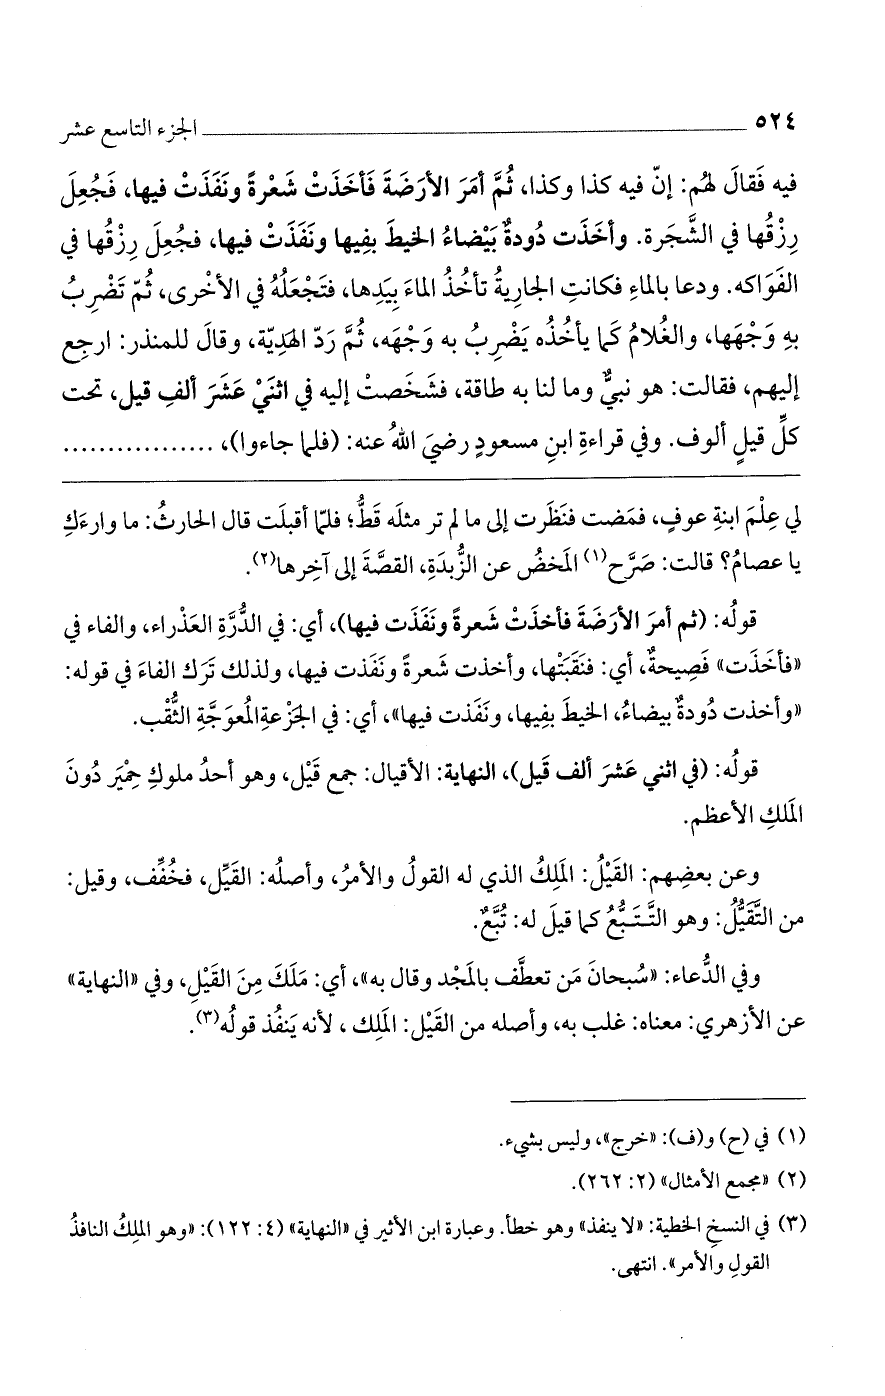 ٥٢٤ ــــــــــــــــــــ الجزء التاسع عشر
فيه فَقالَ لهُم: إنّ فيه كذا وكذا، ثُمَّ أمَرَ الأرَضَةَ فَأخَذَتْ شَعْرةً ونَفَذَتْ فيها، فَجُعِلَ
رِزْقُها في الشَّجَرة. وأخَذَت دُودةٌ بَيْضاءُ الخيطَ بِفِيها ونَفَذَتْ فيها، فجُعِلَ رِزْقُها في
الفَوَاكه. ودعا بالماءِ فكانتِ الجاريةُ تأخُذُ الماءَ بِيَدِها، فتَجْعَلُهُ في الأخْرى، ثُمّ تَضْرِبُ
بهِ وَجْهَها، والغُلامُ كَما يأخُذُه يَضْرِبُ به وَجْهَه، ثُمَّ رَدّ الهَدِيّة، وقالَ للمنذر: ارجِع
إليهم، فقالت: هو نبيٌّ وما لنا به طاقة، فشَخَصتْ إليه في اثنَيْ عَشَرَ ألفِ قيل، تحت
كلِّ قيلٍ ألوف. وفي قراءةِ ابنِ مسعودٍ رضيَ اللهُ عنه: (فلما جاءوا)، .................
لي عِلْمَ ابنةِ عوفٍ، فمَضت فنَظَرت إلى ما لم تر مثلَه قَطُّ؛ فلمّا أقبلَت قال الحارثُ: ما وراءَكِ
يا عصامُ؟ قالت: صَرَّح(١) المَخضُ عن الزُّبدَةِ، القصَّةَ إلى آخِرها(٢).
قولُه: (ثم أمرَ الأرَضَةَ فأخذَتْ شَعرةً ونَفَذَت فيها)، أي: في الدُّرَّةِ العَذْراء، والفاء في
«فأخَذَت» فَصِيحةٌ، أي: فنَقَبَتْها، وأخذت شَعرةً ونَفَذَت فيها، ولذلك تَرَك الفاءَ في قوله:
«وأخذت دُودةٌ بيضاءُ، الخيطَ بِفِيها، ونَفَذت فيها»، أي: في الجَزْعةِ المُعوَجَّةِ الثُّقْب.
قولُه: (في اثني عَشرَ ألف قَيل)، النهاية: الأقيال: جمع قَيْل، وهو أحدُ ملوكِ حِمْيَر دُونَ
المَلكِ الأعظم.
وعن بعضِهم: القَيْلُ: المَلِكُ الذي له القولُ والأمرُ، وأصلُه: القَيِّل، فخُفِّف، وقيل:
من التَّقَيُّلُ: وهو التَّتَبُّعُ كما قيلَ له: تُبَّعٌ.
وفي الدُّعاء: «سُبحانَ مَن تعطَّف بالمَجْد وقال به»، أي: مَلَكَ مِنَ القَيْلِ، وفي «النهاية»
عن الأزهري: معناه: غلب به، وأصله من القَيْل: المَلِك ، لأنه يَنفُذ قولُه(٣).
(١) في (ح) و(ف): «خرج»، وليس بشيء.
(٢) «مجمع الأمثال» (٢: ٢٦٢).
(٣) في النسخ الخطية: «لا ينفذ» وهو خطأ. وعبارة ابن الأثير في «النهاية» (٤: ١٢٢): «وهو الملِكُ النافذُ
القولِ والأمر». انتهى.